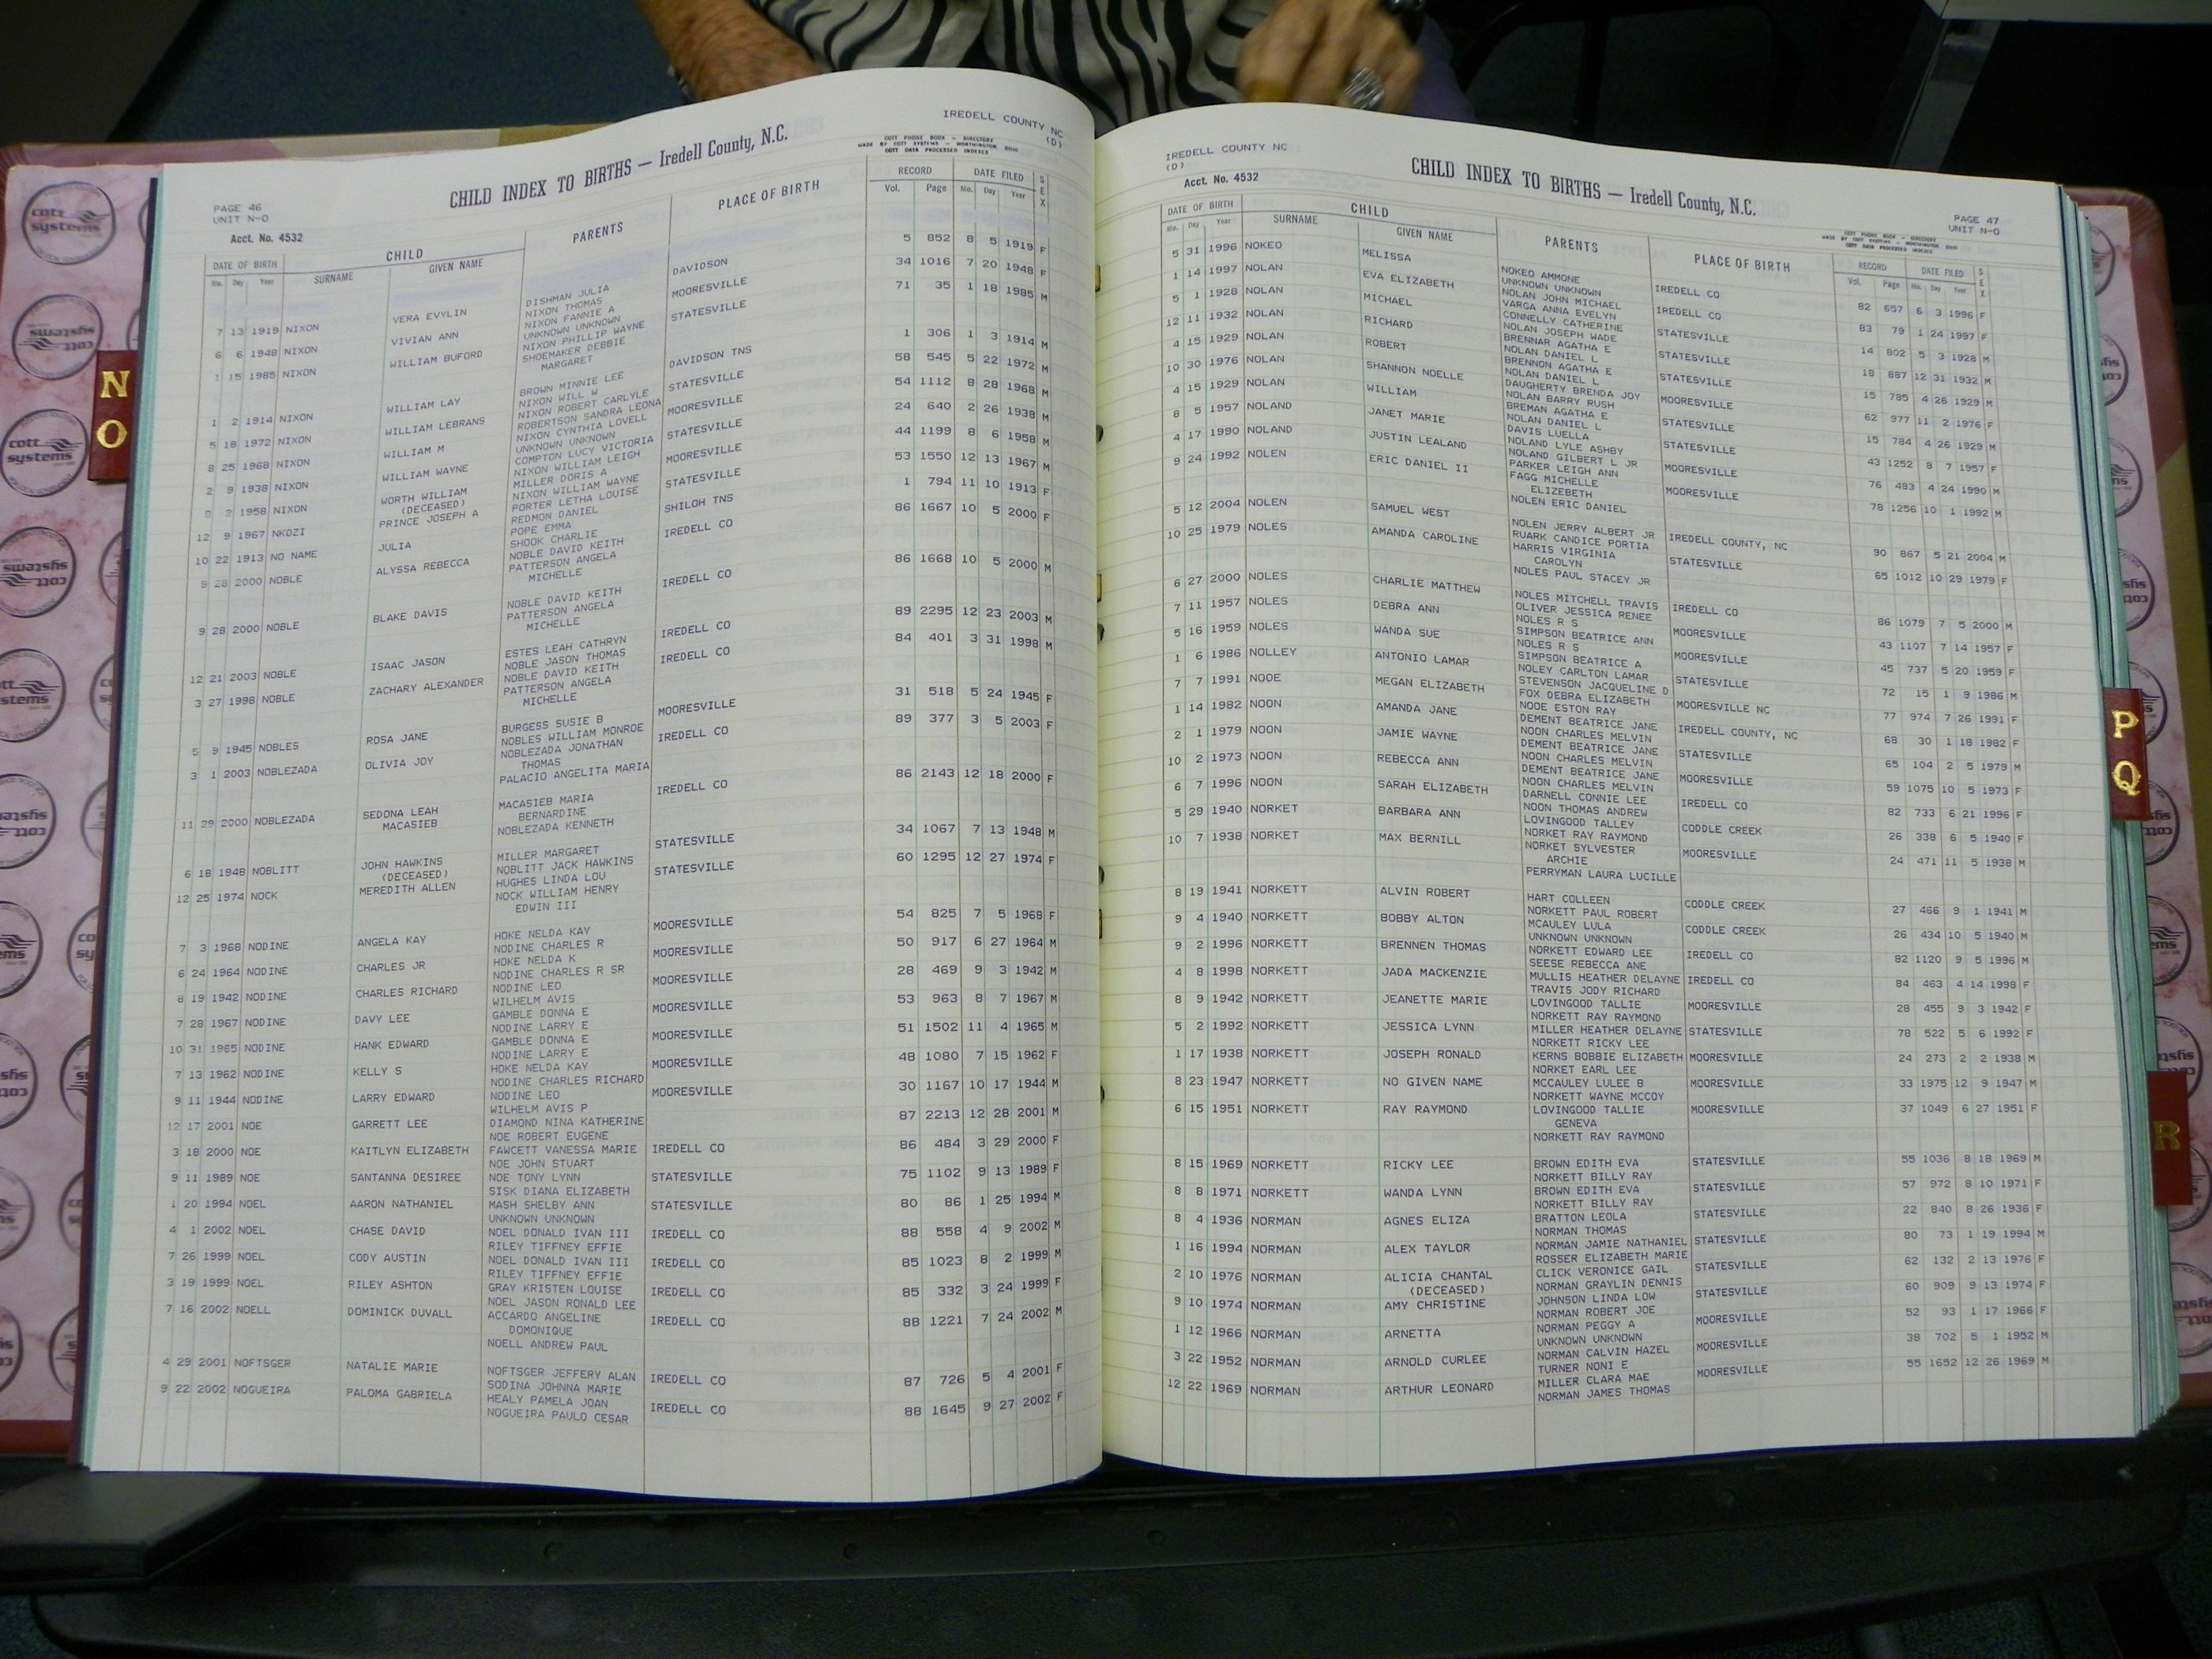 IREDELL COUNTY NC
(D)
COTT PHONE BOOK — DIRECTORY
MADE BY COTT SYSTEMS — WORTHINGTON, OHIO
COTT DATA PROCESSED INDEXES
CHILD INDEX TO BIRTHS — Iredell County, N.C.
PAGE 46
UNIT N-O
Acct. No. 4532
DATE OF BIRTH CHILD PARENTS PLACE OF BIRTH RECORD DATE FILED SEX
Mo. Day Year SURNAME GIVEN NAME Vol. Page Mo. Day Year
7 13 1919 NIXON VERA EVYLIN DISHMAN JULIA DAVIDSON 5 852 8 5 1919 F
NIXON THOMAS
6 6 1948 NIXON VIVIAN ANN NIXON FANNIE A MOORESVILLE 34 1016 7 20 1948 F
UNKNOWN UNKNOWN
1 15 1985 NIXON WILLIAM BUFORD NIXON PHILLIP WAYNE STATESVILLE 71 35 1 18 1985 M
SHOEMAKER DEBBIE
MARGARET
1 2 1914 NIXON WILLIAM LAY BROWN MINNIE LEE DAVIDSON TNS 1 306 1 3 1914 M
NIXON WILL W
5 18 1972 NIXON WILLIAM LEBRANS NIXON ROBERT CARLYLE STATESVILLE 58 545 5 22 1972 M
ROBERTSON SANDRA LEONA
8 25 1968 NIXON WILLIAM M NIXON CYNTHIA LOVELL MOORESVILLE 54 1112 8 28 1968 M
UNKNOWN UNKNOWN
2 9 1938 NIXON WILLIAM WAYNE COMPTON LUCY VICTORIA STATESVILLE 24 640 2 26 1938 M
NIXON WILLIAM LEIGH
8 2 1958 NIXON WORTH WILLIAM MILLER DORIS A MOORESVILLE 44 1199 8 6 1958 M
(DECEASED) NIXON WILLIAM WAYNE
12 9 1967 NKOZI PRINCE JOSEPH A PORTER LETHA LOUISE STATESVILLE 53 1550 12 13 1967 M
REDMON DANIEL
10 22 1913 NO NAME JULIA POPE EMMA SHILOH TNS 1 794 11 10 1913 F
SHOOK CHARLIE
9 28 2000 NOBLE ALYSSA REBECCA NOBLE DAVID KEITH IREDELL CO 86 1667 10 5 2000 F
PATTERSON ANGELA
MICHELLE
9 28 2000 NOBLE BLAKE DAVIS NOBLE DAVID KEITH IREDELL CO 86 1668 10 5 2000 M
PATTERSON ANGELA
MICHELLE
12 21 2003 NOBLE ISAAC JASON ESTES LEAH CATHRYN IREDELL CO 89 2295 12 23 2003 M
NOBLE JASON THOMAS
3 27 1998 NOBLE ZACHARY ALEXANDER NOBLE DAVID KEITH IREDELL CO 84 401 3 31 1998 M
PATTERSON ANGELA
MICHELLE
5 9 1945 NOBLES ROSA JANE BURGESS SUSIE B MOORESVILLE 31 518 5 24 1945 F
NOBLES WILLIAM MONROE
3 1 2003 NOBLEZADA OLIVIA JOY NOBLEZADA JONATHAN IREDELL CO 89 377 3 5 2003 F
THOMAS
PALACIO ANGELITA MARIA
11 29 2000 NOBLEZADA SEDONA LEAH MACASIEB MARIA IREDELL CO 86 2143 12 18 2000 F
MACASIEB BERNARDINE
NOBLEZADA KENNETH
6 18 1948 NOBLITT JOHN HAWKINS MILLER MARGARET STATESVILLE 34 1067 7 13 1948 M
(DECEASED) NOBLITT JACK HAWKINS
12 25 1974 NOCK MEREDITH ALLEN HUGHES LINDA LOU STATESVILLE 60 1295 12 27 1974 F
NOCK WILLIAM HENRY
EDWIN III
7 3 1968 NODINE ANGELA KAY HOKE NELDA KAY MOORESVILLE 54 825 7 5 1968 F
NODINE CHARLES R
6 24 1964 NODINE CHARLES JR HOKE NELDA K MOORESVILLE 50 917 6 27 1964 M
NODINE CHARLES R SR
8 19 1942 NODINE CHARLES RICHARD NODINE LEO MOORESVILLE 28 469 9 3 1942 M
WILHELM AVIS
7 28 1967 NODINE DAVY LEE GAMBLE DONNA E MOORESVILLE 53 963 8 7 1967 M
NODINE LARRY E
10 31 1965 NODINE HANK EDWARD GAMBLE DONNA E MOORESVILLE 51 1502 11 4 1965 M
NODINE LARRY E
7 13 1962 NODINE KELLY S HOKE NELDA KAY MOORESVILLE 48 1080 7 15 1962 F
NODINE CHARLES RICHARD
9 11 1944 NODINE LARRY EDWARD NODINE LEO MOORESVILLE 30 1167 10 17 1944 M
WILHELM AVIS P
12 17 2001 NOE GARRETT LEE DIAMOND NINA KATHERINE 87 2213 12 28 2001 M
NOE ROBERT EUGENE
3 18 2000 NOE KAITLYN ELIZABETH FAWCETT VANESSA MARIE IREDELL CO 86 484 3 29 2000 F
NOE JOHN STUART
9 11 1989 NOE SANTANNA DESIREE NOE TONY LYNN STATESVILLE 75 1102 9 13 1989 F
SISK DIANA ELIZABETH
1 20 1994 NOEL AARON NATHANIEL MASH SHELBY ANN STATESVILLE 80 86 1 25 1994 M
UNKNOWN UNKNOWN
4 1 2002 NOEL CHASE DAVID NOEL DONALD IVAN III IREDELL CO 88 558 4 9 2002 M
RILEY TIFFNEY EFFIE
7 26 1999 NOEL CODY AUSTIN NOEL DONALD IVAN III IREDELL CO 85 1023 8 2 1999 M
RILEY TIFFNEY EFFIE
3 19 1999 NOEL RILEY ASHTON GRAY KRISTEN LOUISE IREDELL CO 85 332 3 24 1999 F
NOEL JASON RONALD LEE
7 16 2002 NOELL DOMINICK DUVALL ACCARDO ANGELINE IREDELL CO 88 1221 7 24 2002 M
DOMONIQUE
NOELL ANDREW PAUL
4 29 2001 NOFTSGER NATALIE MARIE NOFTSGER JEFFERY ALAN IREDELL CO 87 726 5 4 2001 F
SODINA JOHNNA MARIE
9 22 2002 NOGUEIRA PALOMA GABRIELA HEALY PAMELA JOAN IREDELL CO 88 1645 9 27 2002 F
NOGUEIRA PAULO CESAR
IREDELL COUNTY NC
(D)
Acct. No. 4532
CHILD INDEX TO BIRTHS — Iredell County, N.C.
PAGE 47
UNIT N-O
COTT PHONE BOOK — DIRECTORY
MADE BY COTT SYSTEMS — WORTHINGTON, OHIO
COTT DATA PROCESSED INDEXES
DATE OF BIRTH CHILD PARENTS PLACE OF BIRTH RECORD DATE FILED SEX
Mo. Day Year SURNAME GIVEN NAME Vol. Page Mo. Day Year
5 31 1996 NOKEO MELISSA NOKEO AMMONE IREDELL CO 82 657 6 3 1996 F
UNKNOWN UNKNOWN
1 14 1997 NOLAN EVA ELIZABETH NOLAN JOHN MICHAEL IREDELL CO 83 79 1 24 1997 F
VARGA ANNA EVELYN
5 1 1928 NOLAN MICHAEL CONNELLY CATHERINE STATESVILLE 14 802 5 3 1928 M
NOLAN JOSEPH WADE
12 11 1932 NOLAN RICHARD BRENNAR AGATHA E STATESVILLE 18 887 12 31 1932 M
NOLAN DANIEL L
4 15 1929 NOLAN ROBERT BRENNON AGATHA E STATESVILLE 15 785 4 26 1929 M
NOLAN DANIEL L
10 30 1976 NOLAN SHANNON NOELLE DAUGHERTY BRENDA JOY MOORESVILLE 62 977 11 2 1976 F
NOLAN BARRY RUSH
4 15 1929 NOLAN WILLIAM BREMAN AGATHA E STATESVILLE 15 784 4 26 1929 M
NOLAN DANIEL L
8 5 1957 NOLAND JANET MARIE DAVIS LUELLA STATESVILLE 43 1252 8 7 1957 F
NOLAND LYLE ASHBY
4 17 1990 NOLAND JUSTIN LEALAND NOLAND GILBERT L JR MOORESVILLE 76 483 4 24 1990 M
PARKER LEIGH ANN
9 24 1992 NOLEN ERIC DANIEL II FAGG MICHELLE MOORESVILLE 78 1256 10 1 1992 M
ELIZEBETH
NOLEN ERIC DANIEL
5 12 2004 NOLEN SAMUEL WEST NOLEN JERRY ALBERT JR IREDELL COUNTY, NC 90 867 5 21 2004 M
RUARK CANDICE PORTIA
10 25 1979 NOLES AMANDA CAROLINE HARRIS VIRGINIA STATESVILLE 65 1012 10 29 1979 F
CAROLYN
NOLES PAUL STACEY JR
6 27 2000 NOLES CHARLIE MATTHEW NOLES MITCHELL TRAVIS IREDELL CO 86 1079 7 5 2000 M
OLIVER JESSICA RENEE
7 11 1957 NOLES DEBRA ANN NOLES R S MOORESVILLE 43 1107 7 14 1957 F
SIMPSON BEATRICE ANN
5 16 1959 NOLES WANDA SUE NOLES R S MOORESVILLE 45 737 5 20 1959 F
SIMPSON BEATRICE A
1 6 1986 NOLLEY ANTONIO LAMAR NOLEY CARLTON LAMAR STATESVILLE 72 15 1 9 1986 M
STEVENSON JACQUELINE D
7 7 1991 NOOE MEGAN ELIZABETH FOX DEBRA ELIZABETH MOORESVILLE NC 77 974 7 26 1991 F
NOOE ESTON RAY
1 14 1982 NOON AMANDA JANE DEMENT BEATRICE JANE IREDELL COUNTY, NC 68 30 1 18 1982 F
NOON CHARLES MELVIN
2 1 1979 NOON JAMIE WAYNE DEMENT BEATRICE JANE STATESVILLE 65 104 2 5 1979 M
NOON CHARLES MELVIN
10 2 1973 NOON REBECCA ANN DEMENT BEATRICE JANE MOORESVILLE 59 1075 10 5 1973 F
NOON CHARLES MELVIN
6 7 1996 NOON SARAH ELIZABETH DARNELL CONNIE LEE IREDELL CO 82 733 6 21 1996 F
NOON THOMAS ANDREW
5 29 1940 NORKET BARBARA ANN LOVINGOOD TALLEY CODDLE CREEK 26 338 6 5 1940 F
NORKET RAY RAYMOND
10 7 1938 NORKET MAX BERNILL NORKET SYLVESTER MOORESVILLE 24 471 11 5 1938 M
ARCHIE
PERRYMAN LAURA LUCILLE
8 19 1941 NORKETT ALVIN ROBERT HART COLLEEN CODDLE CREEK 27 466 9 1 1941 M
NORKETT PAUL ROBERT
9 4 1940 NORKETT BOBBY ALTON MCAULEY LULA CODDLE CREEK 26 434 10 5 1940 M
UNKNOWN UNKNOWN
9 2 1996 NORKETT BRENNEN THOMAS NORKETT EDWARD LEE IREDELL CO 82 1120 9 5 1996 M
SEESE REBECCA ANE
4 8 1998 NORKETT JADA MACKENZIE MULLIS HEATHER DELAYNE IREDELL CO 84 463 4 14 1998 F
TRAVIS JODY RICHARD
8 9 1942 NORKETT JEANETTE MARIE LOVINGOOD TALLIE MOORESVILLE 28 455 9 3 1942 F
NORKETT RAY RAYMOND
5 2 1992 NORKETT JESSICA LYNN MILLER HEATHER DELAYNE STATESVILLE 78 522 5 6 1992 F
NORKETT RICKY LEE
1 17 1938 NORKETT JOSEPH RONALD KERNS BOBBIE ELIZABETH MOORESVILLE 24 273 2 2 1938 M
NORKET EARL LEE
8 23 1947 NORKETT NO GIVEN NAME MCCAULEY LULEE B MOORESVILLE 33 1975 12 9 1947 M
NORKETT WAYNE MCCOY
6 15 1951 NORKETT RAY RAYMOND LOVINGOOD TALLIE MOORESVILLE 37 1049 6 27 1951 F
GENEVA
NORKETT RAY RAYMOND
8 15 1969 NORKETT RICKY LEE BROWN EDITH EVA STATESVILLE 55 1036 8 18 1969 M
NORKETT BILLY RAY
8 8 1971 NORKETT WANDA LYNN BROWN EDITH EVA STATESVILLE 57 972 8 10 1971 F
NORKETT BILLY RAY
8 4 1936 NORMAN AGNES ELIZA BRATTON LEOLA STATESVILLE 22 840 8 26 1936 F
NORMAN THOMAS
1 16 1994 NORMAN ALEX TAYLOR NORMAN JAMIE NATHANIEL STATESVILLE 80 73 1 19 1994 M
ROSSER ELIZABETH MARIE
2 10 1976 NORMAN ALICIA CHANTAL CLICK VERONICE GAIL STATESVILLE 62 132 2 13 1976 F
(DECEASED) NORMAN GRAYLIN DENNIS
9 10 1974 NORMAN AMY CHRISTINE JOHNSON LINDA LOW STATESVILLE 60 909 9 13 1974 F
NORMAN ROBERT JOE
1 12 1966 NORMAN ARNETTA NORMAN PEGGY A MOORESVILLE 52 93 1 17 1966 F
UNKNOWN UNKNOWN
3 22 1952 NORMAN ARNOLD CURLEE NORMAN CALVIN HAZEL MOORESVILLE 38 702 5 1 1952 M
TURNER NONI E
12 22 1969 NORMAN ARTHUR LEONARD MILLER CLARA MAE MOORESVILLE 55 1652 12 26 1969 M
NORMAN JAMES THOMAS
N
O
P
Q
R
cott
systems
cott
systems